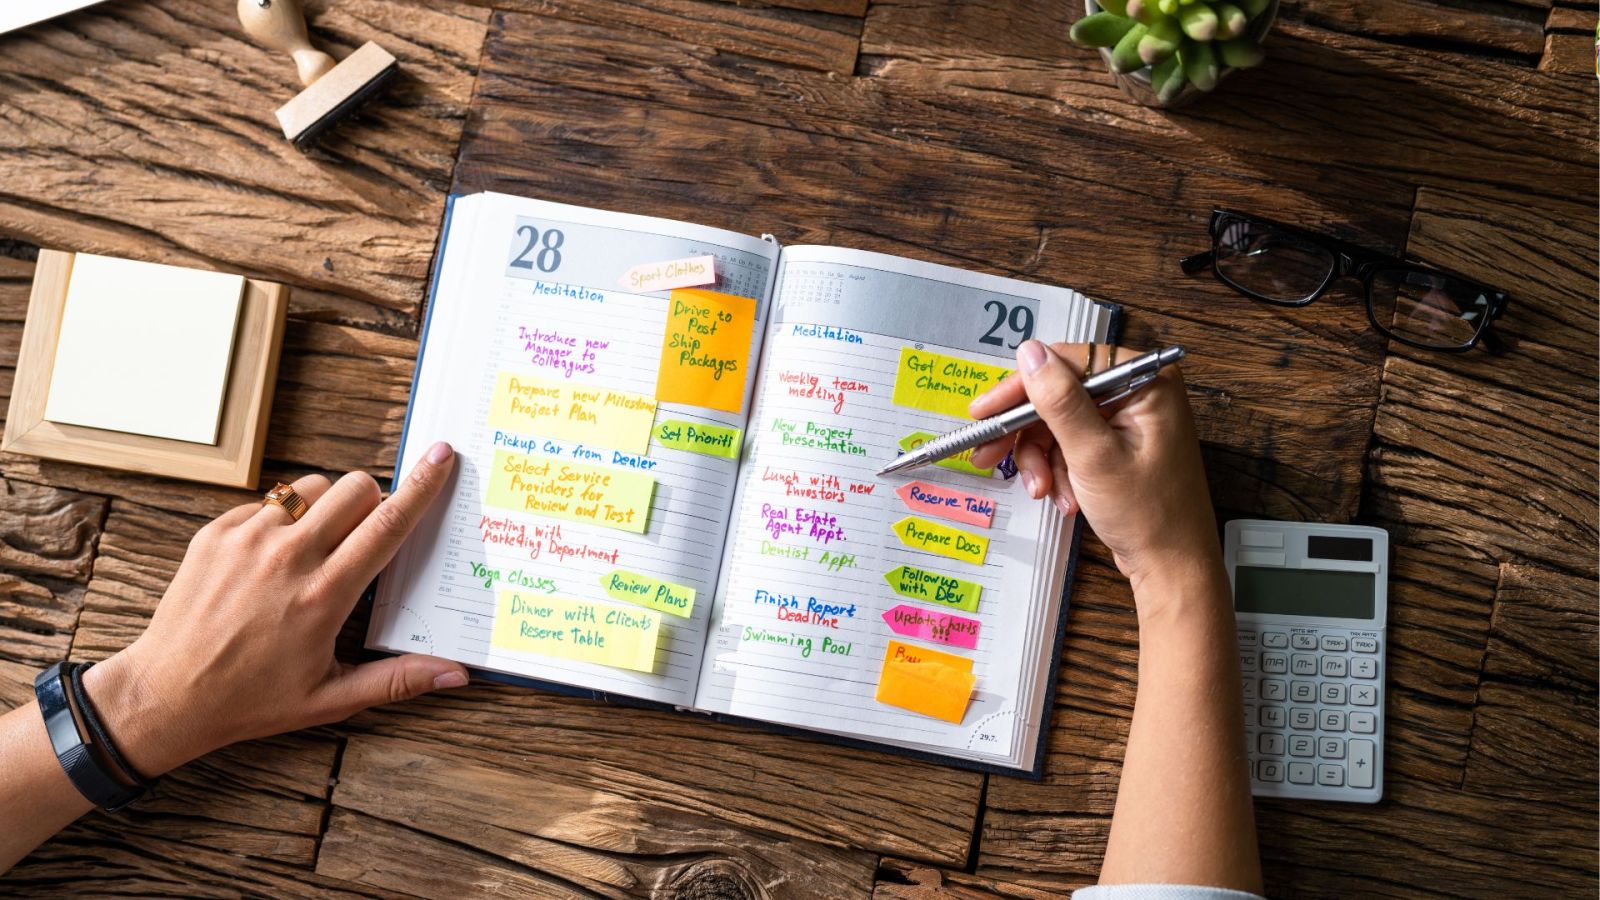 28
Sport Clothes
Meditation
Drive to
Post
Ship
Packages
Introduce new
Manager to
Colleagues
Prepare new Milestone
Project Plan
Set Prioriti
Pickup Car from Dealer
Select Service
Providers for
Review and Test
Meeting with
Marketing Department
Yoga Classes
Review Plans
Dinner with Clients
Reserve Table
28.7.
August
29
Meditation
Get Clothes f
Chemical
Weekly team
meeting
New Project
Presentation
Lunch with new
Investors
Reserve Table
Real Estate
Agent Appt.
Prepare Docs
Dentist Appt.
Follow up
with Dev
Finish Report
Deadline
Update Charts
!!!
Swimming Pool
Buy
29.7.
TAX-
TAX+
MR
M-
M+
÷
7
8
9
×
4
5
6
−
1
2
3
+
0
.
=